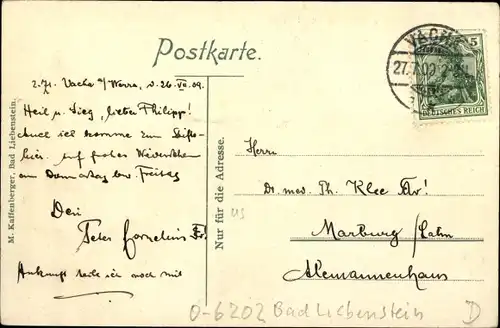 Postkarte.
VACHA
27.7.09
5
DEUTSCHES REICH
z. Zt. Vacha a/Werra, d. 26. VII. 09.
Heil u. Sieg, lieber Philipp!
Auch ich komme zum Stiftungs-
bier, auf frohes Wiedersehen
am Donnerstag bzw. Freitag
Dein
Peter Cornelius
Ankunft teile ich noch mit
M. Kaffenberger, Bad Liebenstein.
Nur für die Adresse.
Herrn
Dr. med. Ph. Klee
Marburg /Lahn
Alemannenhaus
O-6202 Bad Liebenstein
D